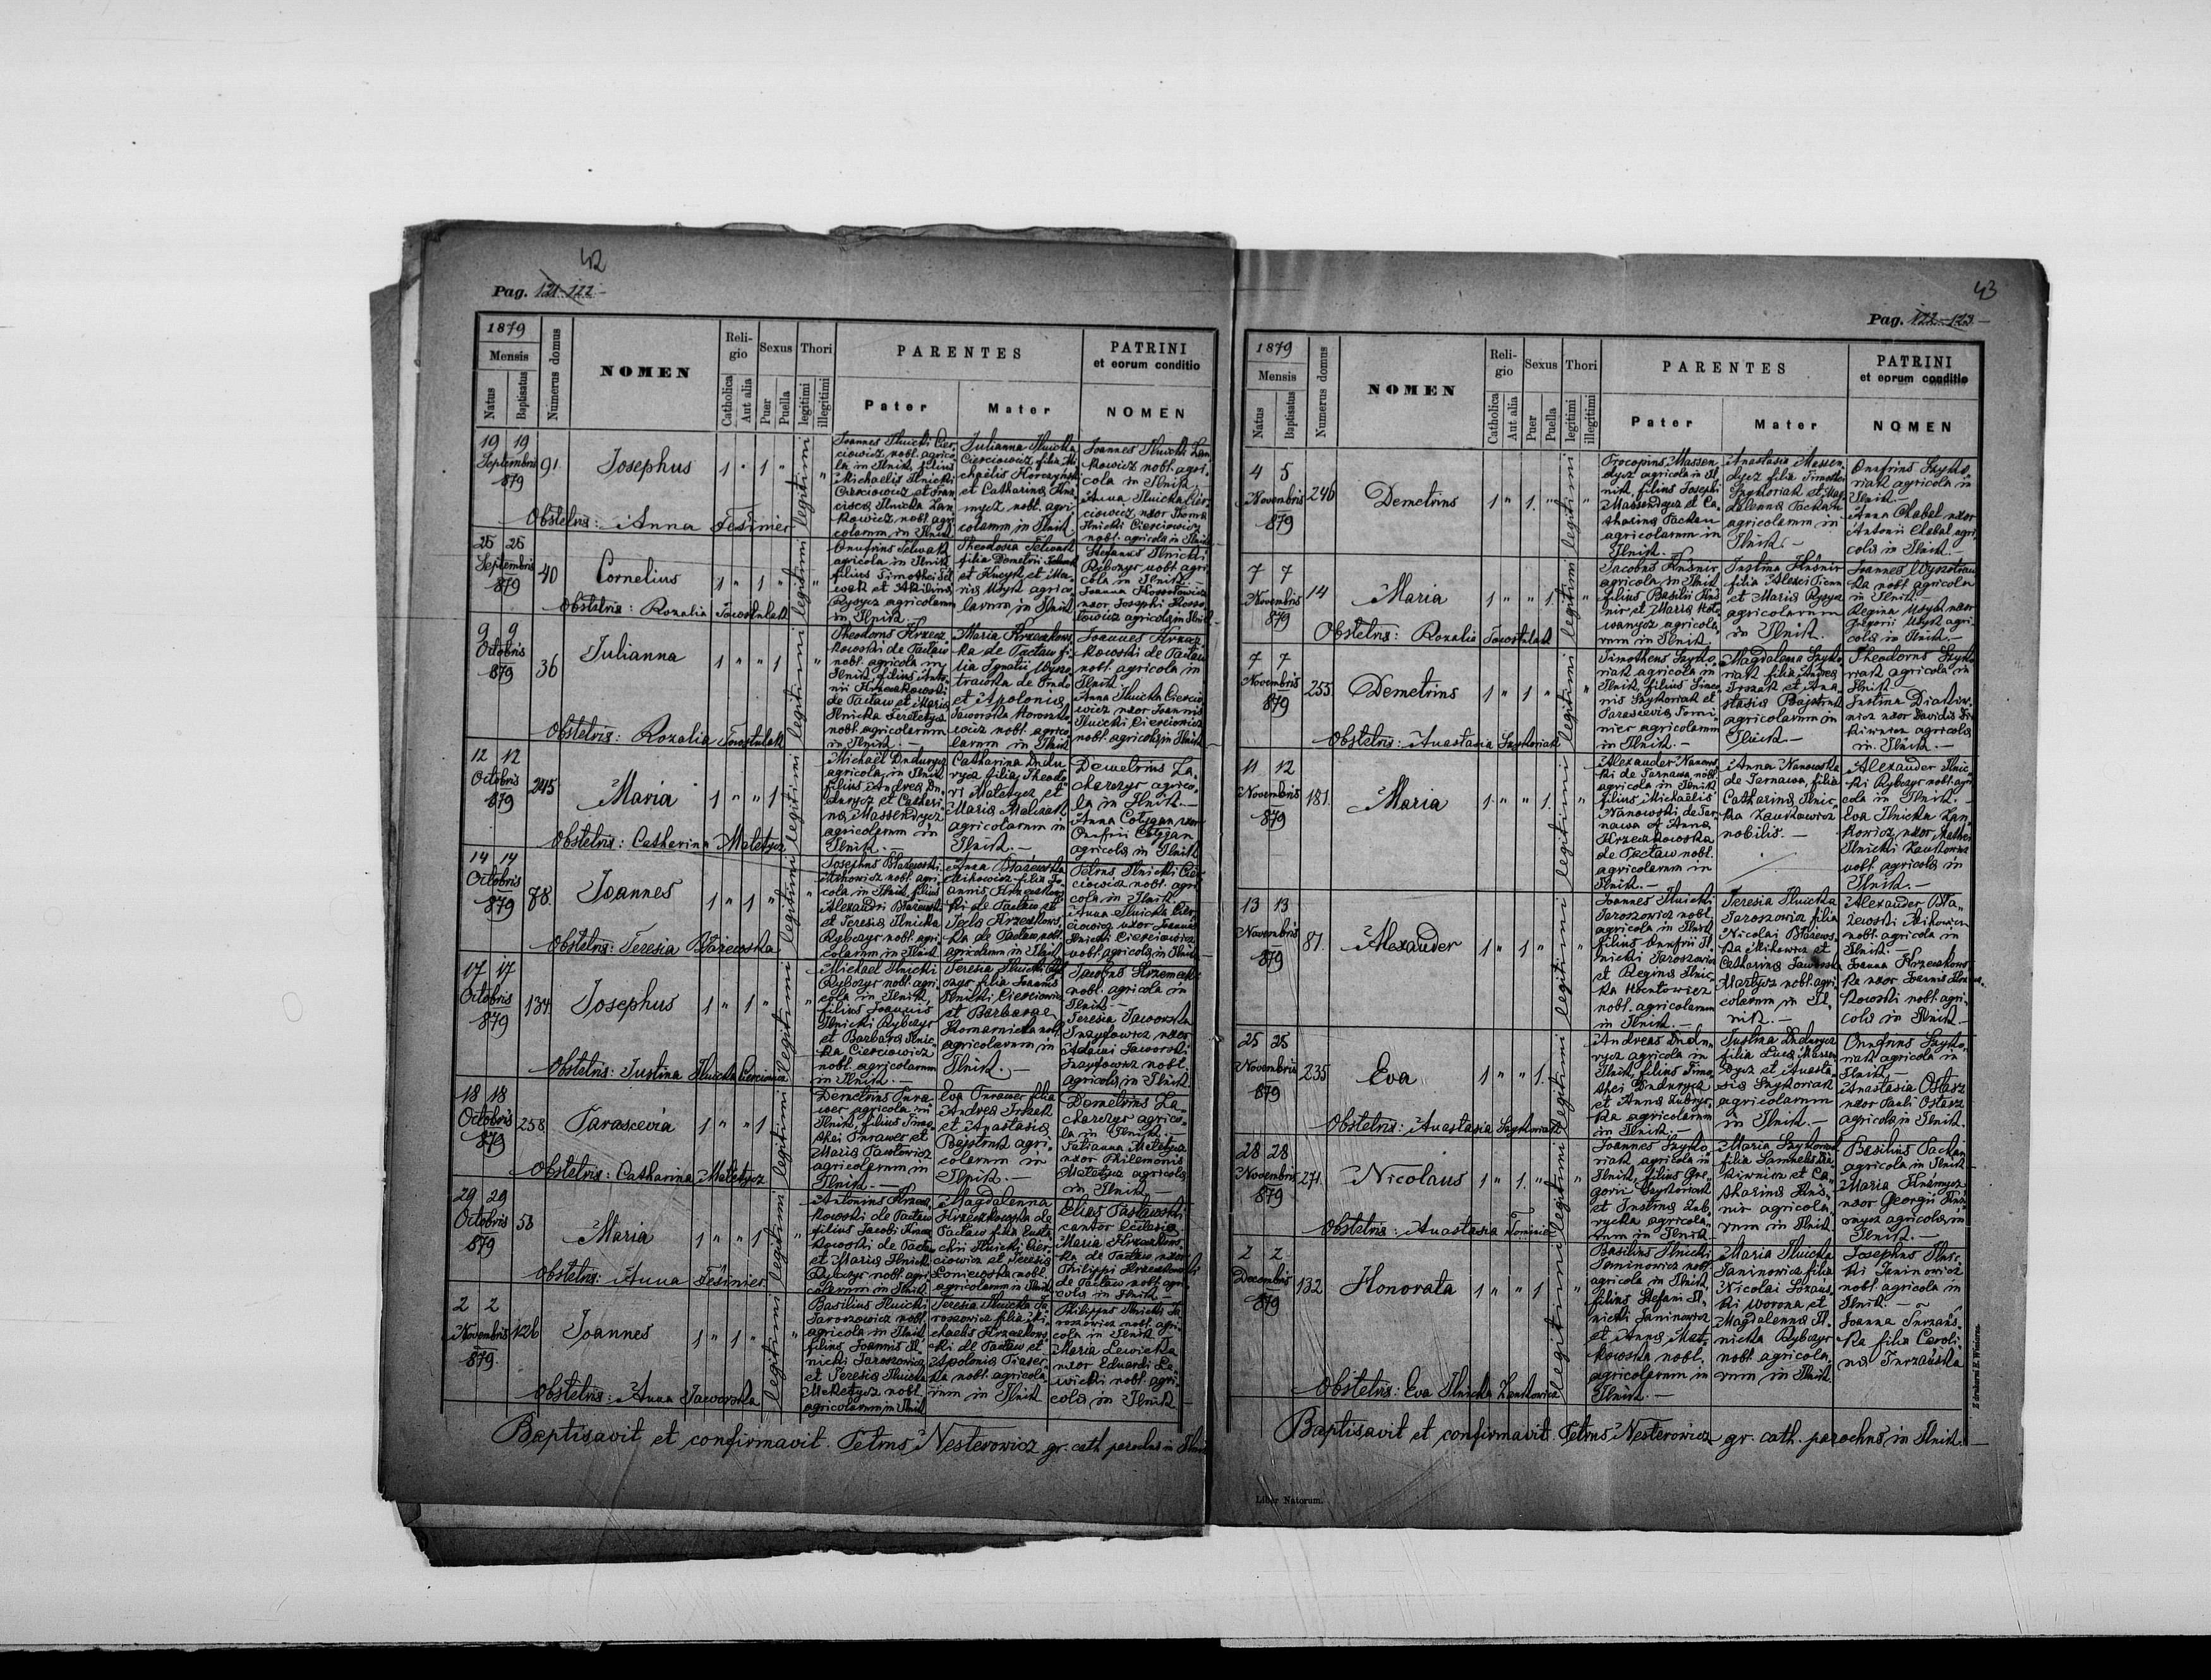 42
Pag. 121-122
1879
Mensis
Natus
Baptisatus
Numerus domus
NOMEN
Religio
Catholica
Aut alia
Sexus
Puer
Puella
Thori
legitimi
illegitimi
PARENTES
Pater
Mater
PATRINI
et eorum conditio
NOMEN
19 19
Septembris
879
91.
Josephus
1 " 1 "
legitimi
Joannes Ilnicki Cier-
ciowicz nobl. agrico-
la in Ilnik, filius
Michaelis Ilnicki
Cierciowicz et Fran-
cisca Ilnicka Zan-
kowicz nobl. agri-
colarum in Ilnik
Julianna Ilnicka
Cierciowicz filia Mi-
chaelis Horczyński
et Catharina
nobl. agri-
colarum in Ilnik.
Joannes Ilnicki Zan-
kowicz nobl. agri-
cola in Ilnik.
Anna Ilnicka Cier-
ciowicz, uxor Thoma
Ilnicki Cierciowicz
nobl. agricola in Ilnik
Obstetrix: Anna Fesinier
25 25
Septembris
879
40
Cornelius
1 " 1 "
legitimi
Onufrius Selwak
agricola in Ilnik
filius Timothei Sel-
wak et Akilina
Rysycz agricolarum
in Ilnik.
Theodosia Selwak
filia Demetrii
et Ma-
ria Usyk agrico-
larum in Ilnik
Stefanus Ilnicki
Rybczyr nobl. agri-
cola in Ilnik.
Joanna Kossotowicz
uxor Josephi Kosso-
towicz agricola in Ilnik
Obstetrix: Rozalia Towstulak
9 9
Octobris
879
36
Julianna
1 " " 1
legitimi
Theodorus Krzecz-
kowski de Tactaw
nobl. agricola in
Ilnik, filius Anto-
nii Krzeczkowski
de Tactaw et Maria
Ilnicka Tereletycz
nobl. agricolarum
in Ilnik.
Maria Krzeczkows-
ka de Tactaw fi-
lia Ignatii Wyszo-
trawka de
et Apolonia
Jaworska
nobl. agrico-
larum in Ilnik
Joannes Krzecz-
kowski de Tactaw
nobl. agricola in
Ilnik.
Anna Ilnicka Ciercio-
wicz uxor Joannis
Ilnicki Cierciowicz
nobl. agricola in Ilnik
Obstetrix: Rozalia Towstulak
12 12
Octobris
879
245
Maria
1 " " 1
legitimi
Michaël Dudurycz
agricola in Ilnik
filius Andrea Du-
durycz et Cathari-
na Massendycz
agricolarum in
Ilnik.
Catharina Dudu-
rycz filia Theodo-
ri Matetycz et
Maria Melizak
agricolarum in
Ilnik.
Demetrius Za-
charczyr agrico-
la in Ilnik.
Anna Cotyzan uxor
Onufrii Cotyzan
agricola in Ilnik
Obstetrix: Catharina Matetycz
14 14
Octobris
879
78.
Joannes
1 " 1 "
legitimi
Josephus Błażewski
Mikowicz nobl. agri-
cola in Ilnik, filius
Alexandri Błażewski
et Teresia Ilnicka
Rybczyr nobl. agri-
colarum in Ilnik
Anna Błażewska
Mikowicz filia Jo-
annis Krzeczkows-
ki de Tactaw et
Tecla Krzeczkows-
ka de Tactaw nobl.
agricolarum in Ilnik
Petrus Ilnicki Cier-
ciowicz nobl. agri-
cola in Ilnik.
Anna Ilnicka Cier-
ciowicz uxor Joannis
Ilnicki Cierciowicz
nobl. agricola in Ilnik
Obstetrix: Teresia Błażewska
17 17
Octobris
879
134
Josephus
1 " 1 "
legitimi
Michael Ilnicki
Rybczyr nobl. agri-
cola in Ilnik,
filius Joannis
Ilnicki Rybczyr
et Barbara Ilnic-
ka Cierciowicz
nobl. agricolarum
in Ilnik.
Teresia Ilnicki Ryb-
czyr filia Joannis
Ilnicki Cierciowicz
et Barbarae
Komarnicka nobl.
agricolarum in
Ilnik.
Jacobus Krzemecki
nobl. agricola in
Ilnik.
Teresia Jaworska
uxor
Adami Jaworski
nobl.
agricola in Ilnik
Obstetrix: Justina Ilnicka Cierciowicz
18 18
Octobris
879
258
Parascevia
1 " " 1
legitimi
Demetrius Turawer
agricola in
Ilnik, filius Timo-
thei Turawer et
Maria Pawlowicz
agricolarum in
Ilnik.
Eva Turawer filia
Andrea Irszak
et Anastasia
Bajstruk agri-
colarum in
Ilnik.
Demetrius Za-
charczyr agrico-
la in Ilnik.
Tatianna Matetycz
uxor Philemonis
Matetycz agricola
in Ilnik
Obstetrix: Catharina Matetycz
29 29
Octobris
879
58
Maria
1 " " 1
legitimi
Antonius Krzecz-
kowski de Tactaw
filius Jacobi Krzecz-
kowski de Tactaw
et Maria Ilnicki
Rybczyr nobl. agri-
colarum in Ilnik
Magdalenna
Krzeczkowska de
Tactaw filia Eusta-
chii Ilnicki Cier-
ciowicz et Teresia
Loniewska nobl.
agricolarum in Ilnik
Elias Pasławski
cantor Eclesia
Maria Krzeczkows-
ka de Tactaw uxor
Philippi Krzeczkowski
de Tactaw nobl. agri-
cola in Ilnik
Obstetrix: Anna Fesinier
2 2
Novembris
879.
126
Joannes
1 " 1 "
legitimi
Basilius Ilnicki
Jaroszowicz nobl.
agricola in Ilnik
filius Joannis Il-
nicki Jaroszowicz
et Teresia Ilnicka
Meketycz nobl.
agricolarum in Ilnik
Teresia Ilnicka Ja-
roszowicz filia Mi-
chaelis Krzeczkows-
ki de Tactaw et
Apolonia
nobl. agricola-
rum in Ilnik
Philippus Ilnicki Ja-
roszowicz nobl. agri-
cola in Ilnik
Maria Lewicka
uxor Eduardi Le-
wicki nobl. agri-
cola in Ilnik
Obstetrix: Anna Jaworska
Baptisavit et confirmavit. Petrus Nesterowicz gr. cath. parochus in Ilnik
43
Pag. 122-123
1879
Mensis
Natus
Baptisatus
Numerus domus
NOMEN
Religio
Catholica
Aut alia
Sexus
Puer
Puella
Thori
legitimi
illegitimi
PARENTES
Pater
Mater
PATRINI
et eorum conditio
NOMEN
4 5
Novembris
879
246
Demetrius
1 " 1 "
legitimi
Procopius Massen-
dycz agricola in Il-
nik, filius Josephi
Massendycz et Ca-
tharina Packan
agricolarum in
Ilnik.
Anastasia Massen-
dycz filia Timothei
Szykoriak et Mag-
dalenna Packan
agricolarum in
Ilnik.
Onufrius Szyko-
riak agricola in
Ilnik.
Anna Chabal uxor
Antonii Chabal agri-
cola in Ilnik.
7 7
Novembris
879
14
Maria
1 " " 1
legitimi
Jacobus Kusnir
agricola in Ilnik
filius Basilii Kus-
nir et Maria Hoto-
wanycz agricola-
rum in Ilnik.
Justina Kusnir
filia Alexii
et Maria Rysycz
agricolarum
in Ilnik.
Joannes Wyszotraw-
ka nobl. agricola
in Ilnik.
Regina Usyk uxor
Gregorii Usyk agri-
cola in Ilnik.
Obstetrix: Rozalia Towstulak
7 7
Novembris
879
255
Demetrius
1 " 1 "
legitimi
Timotheus Szyko-
riak agricola in
Ilnik, filius Simeo-
nis Szykoriak et
Parascevia Tomi-
nier agricolarum
in Ilnik.
Magdalena Szyko-
riak filia Andrea
Irszak et Ana-
stasia Bajstruk
agricolarum in
Ilnik.
Theodorus Szyko-
riak agricola in
Ilnik
Justina Diakiw-
nicz uxor Davidis
agricola
in Ilnik.
Obstetrix: Anastasia Szykoriak
11 12
Novembris
879
181.
Maria
1 " " 1
legitimi
Alexander Nanows-
ki de Tarnawa nobl.
agricola in Ilnik
filius Michaelis
Nanowski de Tar-
nawa et Anna
Krzeczkowska
de Tactaw nobl.
agricolarum in
Ilnik.
Anna Nanowska
de Tarnawa, filia
Catharina Ilnic-
ka Zankowicz
nobilis.
Alexander Ilnic-
ki Rybczyr nobl. agri-
cola in Ilnik.
Eva Ilnicka Zan-
kowicz, uxor Mathei
Ilnicki Zankowicz
nobl. agricola in
Ilnik.
13 13
Novembris
879
81.
Alexander
1 " 1 "
legitimi
Joannes Ilnicki
Jaroszowicz nobl.
agricola in Ilnik
filius Onufrii Il-
nicki Jaroszowicz
et Regina Ilnic-
ka
nobl. agricolarum
in Ilnik.
Teresia Ilnicka
Jaroszowicz filia
Nicolai Błażews-
ka Mikowicz et
Catharina Jaworska
Martycz nobl. agri-
colarum in Il-
nik.
Alexander Bła-
żewski Mikowicz
nobl. agricola in
Ilnik.
Joanna Krzeczkows-
ka uxor Joannis Krzecz-
kowski nobl. agri-
cola in Ilnik.
25 25
Novembris
879
235
Eva
1 " " 1
legitimi
Andreas Dudu-
rycz agricola in
Ilnik, filius Timo-
thei Dudurycz
et Anna Zubryc-
ka agricolarum
in Ilnik.
Justina Dudurycz
filia Luca Massen-
dycz et Anasta-
sia Szykoriak
agricolarum
in Ilnik.
Onufrius Szyko-
riak agricola in
Ilnik.
Anastasia Ostasz
uxor Pauli Ostasz
agricola in Ilnik.
Obstetrix: Anastasia Szykoriak
28 28
Novembris
879
271.
Nicolaus
1 " 1 "
legitimi
Joannes Szyko-
riak agricola in
Ilnik, filius Gre-
gorii Szykoriak
et Justina Zub-
rycka agricola-
rum in Ilnik.
Maria Szykoriak
filia Samuelis Dia-
kiwnicz et Ca-
tharina Kus-
nir agricola-
rum in Ilnik
Basilius Packan
agricola in Ilnik
Maria
uxor Georgii
agricola in
Ilnik.
Obstetrix: Anastasia Tominier
2 2
Decembris
879
132
Honorata
1 " " 1
legitimi
Basilius Ilnicki
Janinowicz nobl.
agricola in Ilnik
filius Stefani Il-
nicki Janinowicz
et Anna Mat-
kowska nobl.
agricolarum in
Ilnik.
Maria Ilnicka
Janinowicz filia
Nicolai
Worona et
Magdalenna Il-
nicka Rybczyr
nobl. agricola-
rum in Ilnik.
Josephus Ilnic-
ki Janinowicz
nobl. agricola in
Ilnik.
Joanna Turzańs-
ka filia Caroli-
na Turzańska
Obstetrix: Eva Ilnicka Zankowicz
Baptisavit et confirmavit. Petrus Nesterowicz gr. cath. parochus in Ilnik.
Liber Natorum.
Z drukarni E. Winiarza.